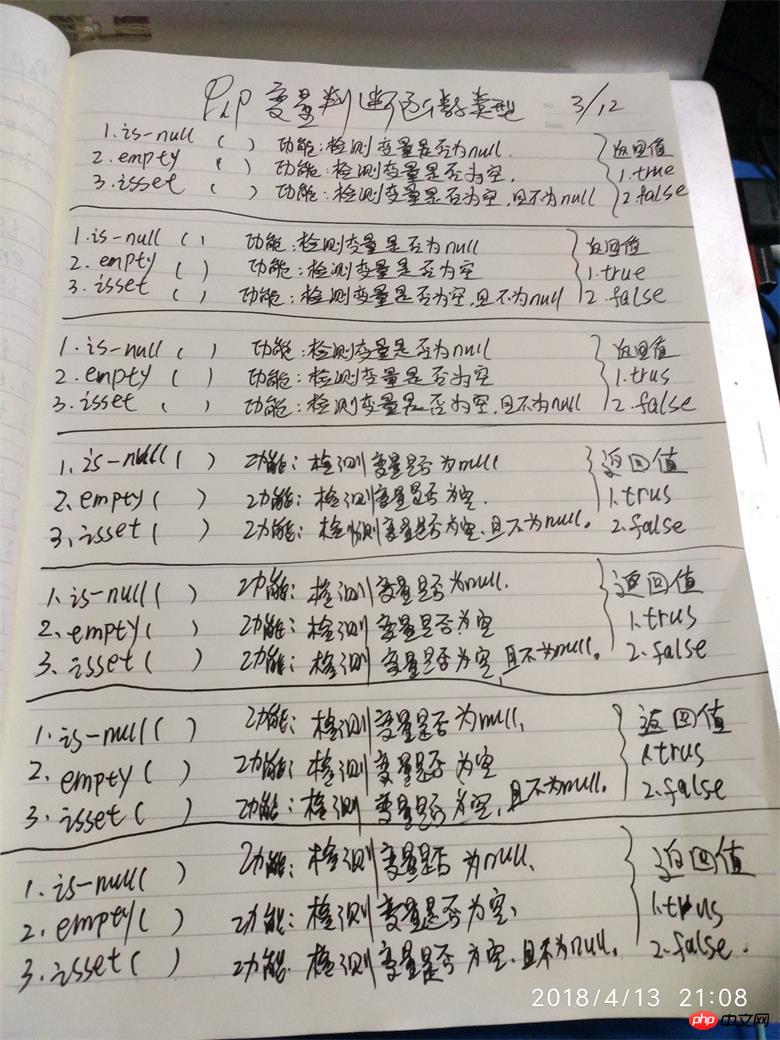 PhP 变量判断函数类型 No. 3/12
Date
1.is-null ( ) 功能:检测变量是否为null. 返回值
2.empty ( ) 功能:检测变量是否为空. 1.true
3.isset ( ) 功能:检测变量是否为空,且不为null 2.false
1.is-null ( ) 功能:检测变量是否为null 返回值
2.empty ( ) 功能:检测变量是否为空 1.true
3.isset ( ) 功能:检测变量是否为空,且不为null 2.false
1.is-null ( ) 功能:检测变量是否为null 返回值
2.empty ( ) 功能:检测变量是否为空 1.trus
3.isset ( ) 功能:检测变量是否为空,且不为null 2.false
1.is-null ( ) 功能:检测变量是否为null 返回值
2.empty ( ) 功能:检测变量是否为空. 1.trus
3.isset ( ) 功能:检测变量是否为空.且不为null. 2.false
1.is-null ( ) 功能:检测变量是否为null. 返回值
2.empty ( ) 功能:检测变量是否为空 1.trus
3.isset ( ) 功能:检测变量是否为空,且不为null. 2.false
1.is-null ( ) 功能:检测变量是否为null, 返回值
2.empty ( ) 功能:检测变量是否为空 1.trus
3.isset ( ) 功能:检测变量是否为空,且不为null. 2.false
1.is-null ( ) 功能:检测变量是否为null、 返回值
2.empty ( ) 功能:检测变量是否为空, 1.trus
3.isset ( ) 功能.检测变量是否为空.且不为null. 2.false.
2018/4/13 21:08
php 中文网